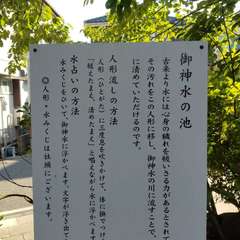 御神水の池
古来より水には心身の穢れを祓いさる力があるとされて
その汚れをこの人形に移し、御神水の川に流すことで
に清めていただけるのです。
人形流しの方法
人形(ひとがた)に三度息を吹きかけて、体に撫でつけ
「祓えたまえ、清めたまえ」と唱えながら水に浮かべます。
水占いの方法
水みくじをひいて、御神水に浮かべます。文字が浮き出て
◎人形・水みくじは社頭にございます。